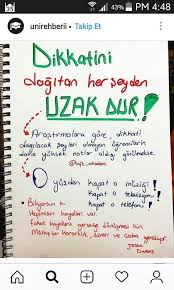 43% PM 4:48
unirehberii • Takip Et
Dikkatini
dağıtan herşeyden
UZAK DUR!
Araştırmalara göre, dikkati
dağılacak şeyleri olmayan öğrencilerin
daha yüksek notlar aldığı görülmüş.
O yüzden kapat o müziği!
kapat o televizyonu!
kapat o telefonu!
Biliyorsun ki
Hepimizin hayalleri var.
Fakat hayallerin gerçeğe dönüşmesi için
kararlılık ve çaba gerekiyor.
Jesse
Owens